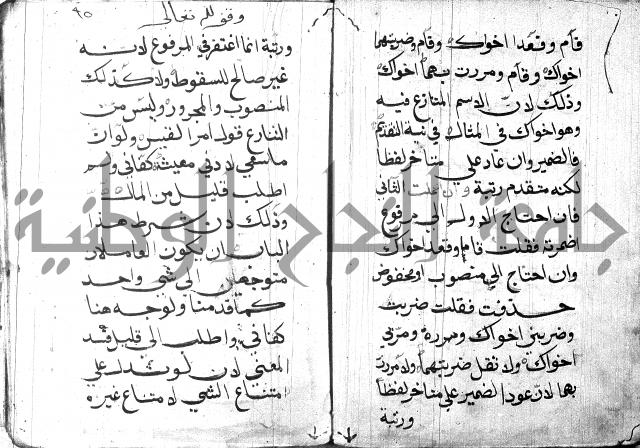 قام وقعدا اخواك وقام وضربتهما
اخواك وقام ومررت بهما اخواك
وذلك لان الاسم المتنازع فيه
وهو اخواك في المثال في نية التقديم
فالضمير وان عاد على متاخر لفظا
لكنه متقدم رتبة وان اعملت الثاني
فان احتاج الاول الى مرفوع
اضمرته فقلت قاما وقعد اخواك
وان احتاج الى منصوب او مخفوض
حذفت فقلت ضربت
وضربني اخواك ومررت ومر بي
اخواك ولا تقل ضربتهما ولا مررت
بهما لان عود الضمير على متاخر لفظا
ورتبة
وقف لله تعالى
٩٥
ورتبة انما اغتفر في المرفوع لانه
غير صالح للسقوط ولا كذلك
المنصوب والمجرور وليس من
التنازع قول امرا القيس ولو ان
ما سعى لادنى معيشة كفاني ولم
اطلب قليل من المال
وذلك لان شرط هذا
الباب ان يكون العاملان
متوجهين الى شي واحد
كما قدمنا ولو وجه هنا
كفاني واطلب الى قليل فسد
المعنى لان لو تدل على
امتناع الشي لامتناع غيره
جامعة النجاح الوطنية